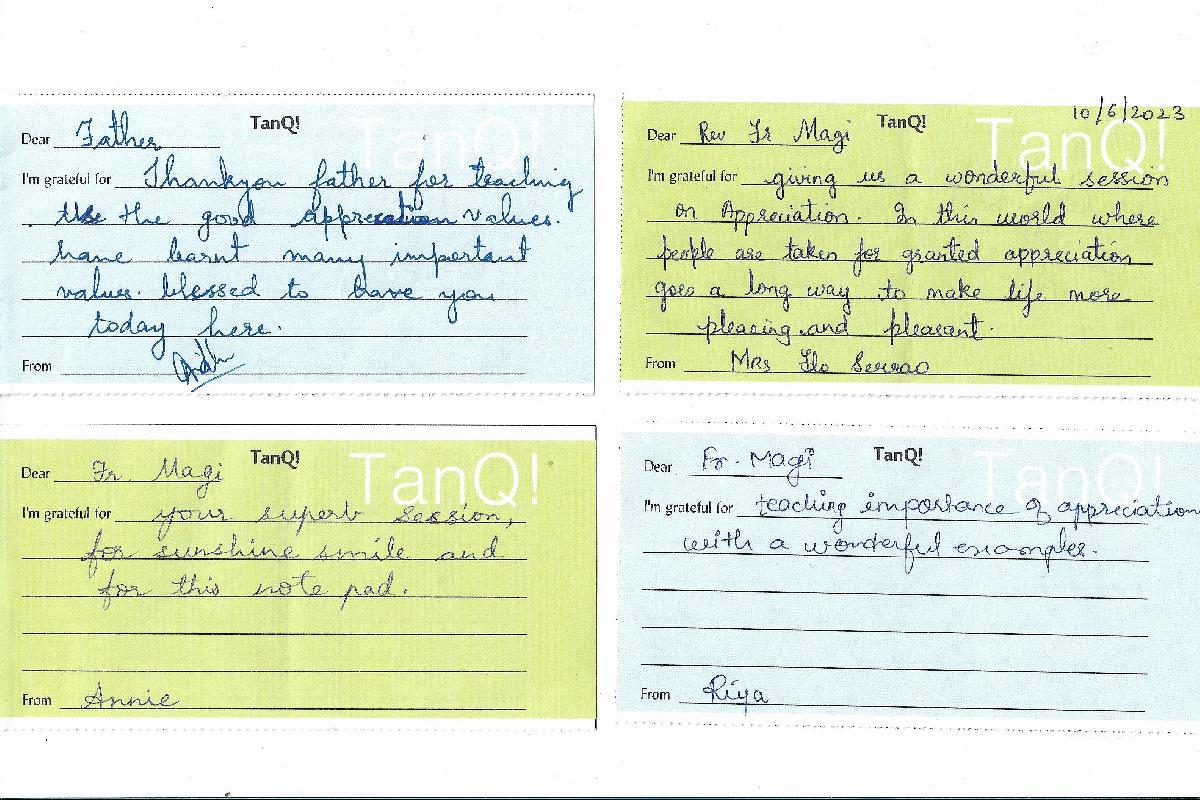 TanQ!
TanQ!
Dear Father
I'm grateful for Thankyou father for teaching
the good appreciation values.
have learnt many important
values. blessed to have you
today here.
From
10/6/2023
TanQ!
TanQ!
Dear Rev Fr Magi
I'm grateful for giving us a wonderful session
on Appreciation. In this world where
people are taken for granted appreciation
goes a long way to make life more
pleasing and pleasant.
From Mrs Flo Serrao
TanQ!
TanQ!
Dear Fr. Magi
I'm grateful for your superb session,
for sunshine smile and
for this note pad.
From Annie
TanQ!
TanQ!
Dear Fr. Magi
I'm grateful for teaching importance of appreciation
with a wonderful examples.
From Riya